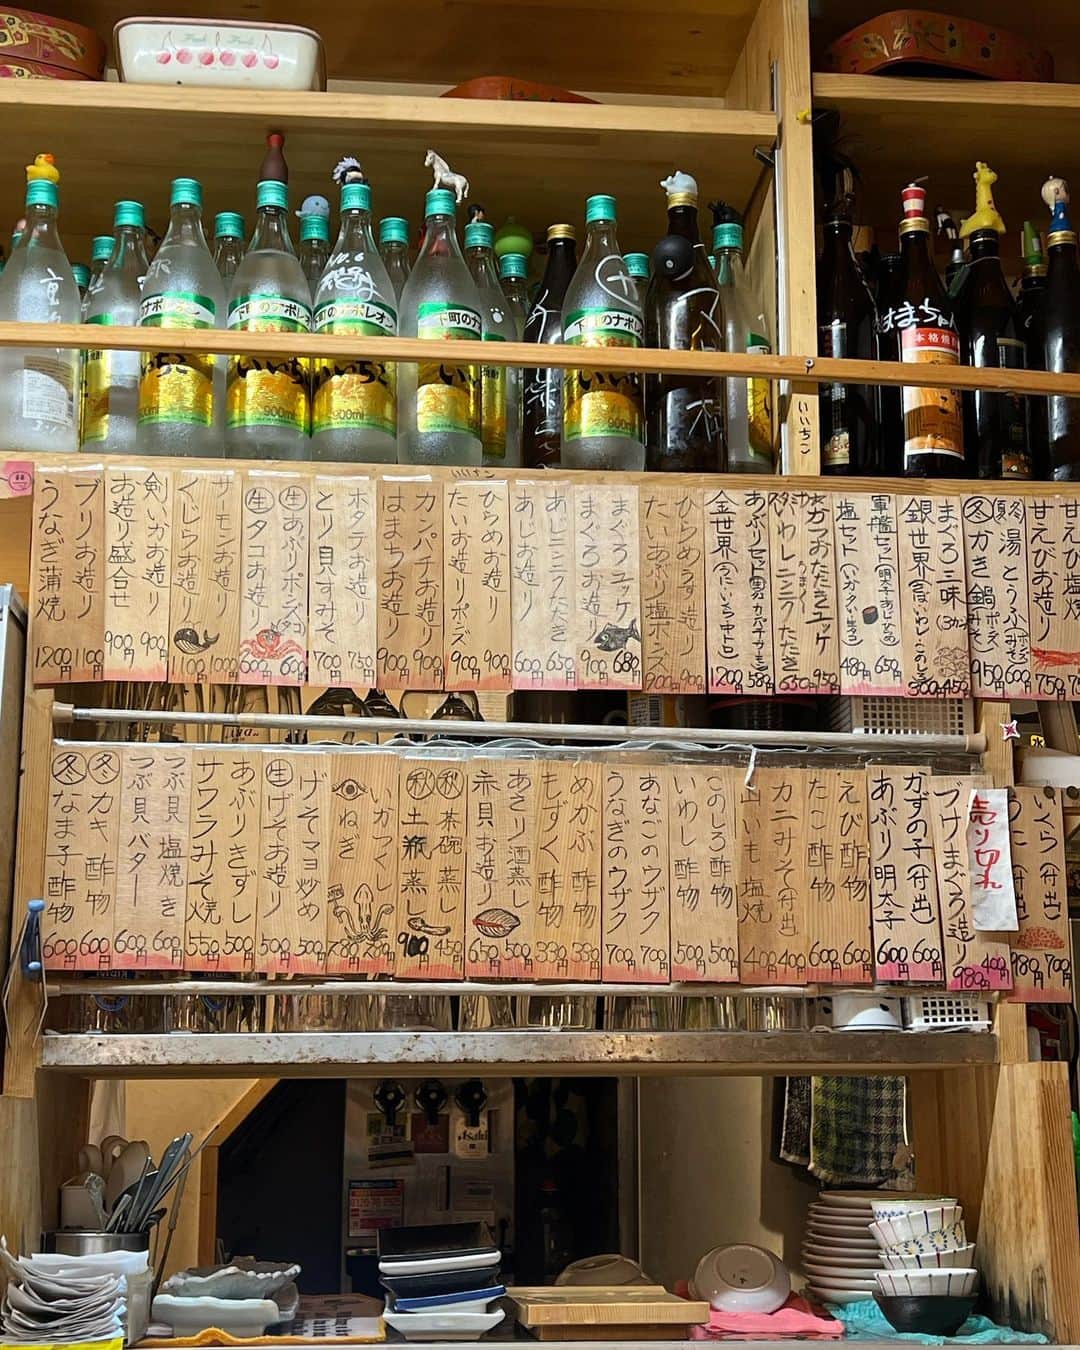 下町のナポレオン
いいちこ
900ml
すまちゃん
本格焼
いいちこ
甘えび塩焼
甘えびお造り 750円
湯とうふ 600円
冬 かき鍋 950円
まぐろ三昧(3カン) 450円
銀世界
軍艦セット 650円
塩セット 480円
かつおたたきユッケ 950円
いわしニンニクたたき 650円
あぶりセット 580円
金世界 1200円
ひらめうす造り 900円
たいあぶり塩ポンズ 900円
まぐろユッケ 680円
まぐろお造り 900円
あじニンニクたたき 650円
あじお造り 600円
ひらめお造り 900円
たいお造りポンズ 900円
カンパチお造り 900円
はまちお造り 900円
ホタテお造り 750円
とり貝すみそ 700円
生あぶりポンズタコ 600円
生タコお造り 600円
サーモンお造り 1000円
くじらお造り 1100円
剣いかお造り 900円
お造り盛合せ 900円
ブリお造り 1100円
うなぎ蒲焼 1200円
いくら(付出) 700円
うに(付出) 980円
売り切れ 400円
づけまぐろ造り 980円
かずの子(付出) 600円
あぶり明太子 600円
えび酢物 600円
たこ酢物 600円
カニみそ(付出) 400円
山いも塩焼 400円
このしろ酢物 500円
いわし酢物 500円
あなごのウザク 700円
うなぎのウザク 700円
めかぶ酢物 330円
もずく酢物 330円
あさり酒蒸し 500円
赤貝お造り 650円
秋 茶碗蒸し 450円
秋 土瓶蒸し 900円
いかつくし
ねぎ 780円
げそマヨ炒め 500円
生げそお造り 500円
あぶりきずし 500円
サワラみそ焼 550円
つぶ貝塩焼き 600円
つぶ貝バター 600円
冬 カキ酢物 600円
冬 なま子酢物 600円
Asahi